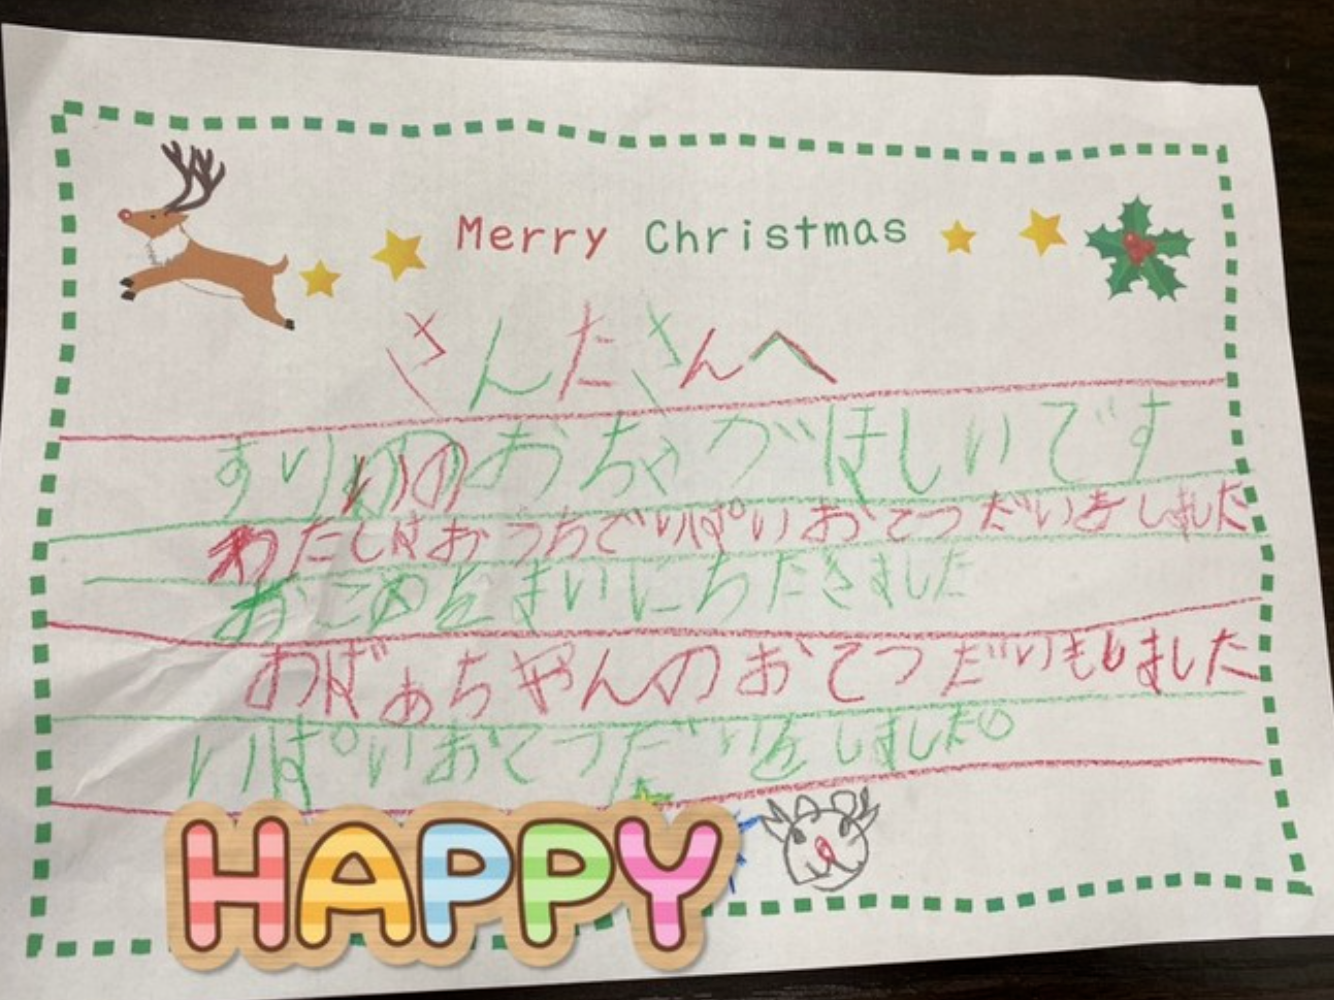 Merry Christmas
さんたさんへ
すりりのおちゃがほしいです
わたしはおうちでいぱいおてつだいをしました
おこめをまいにちたきました
おばあちやんのおてつだいもしました
いぱいおてつだいをしました。
HAPPY